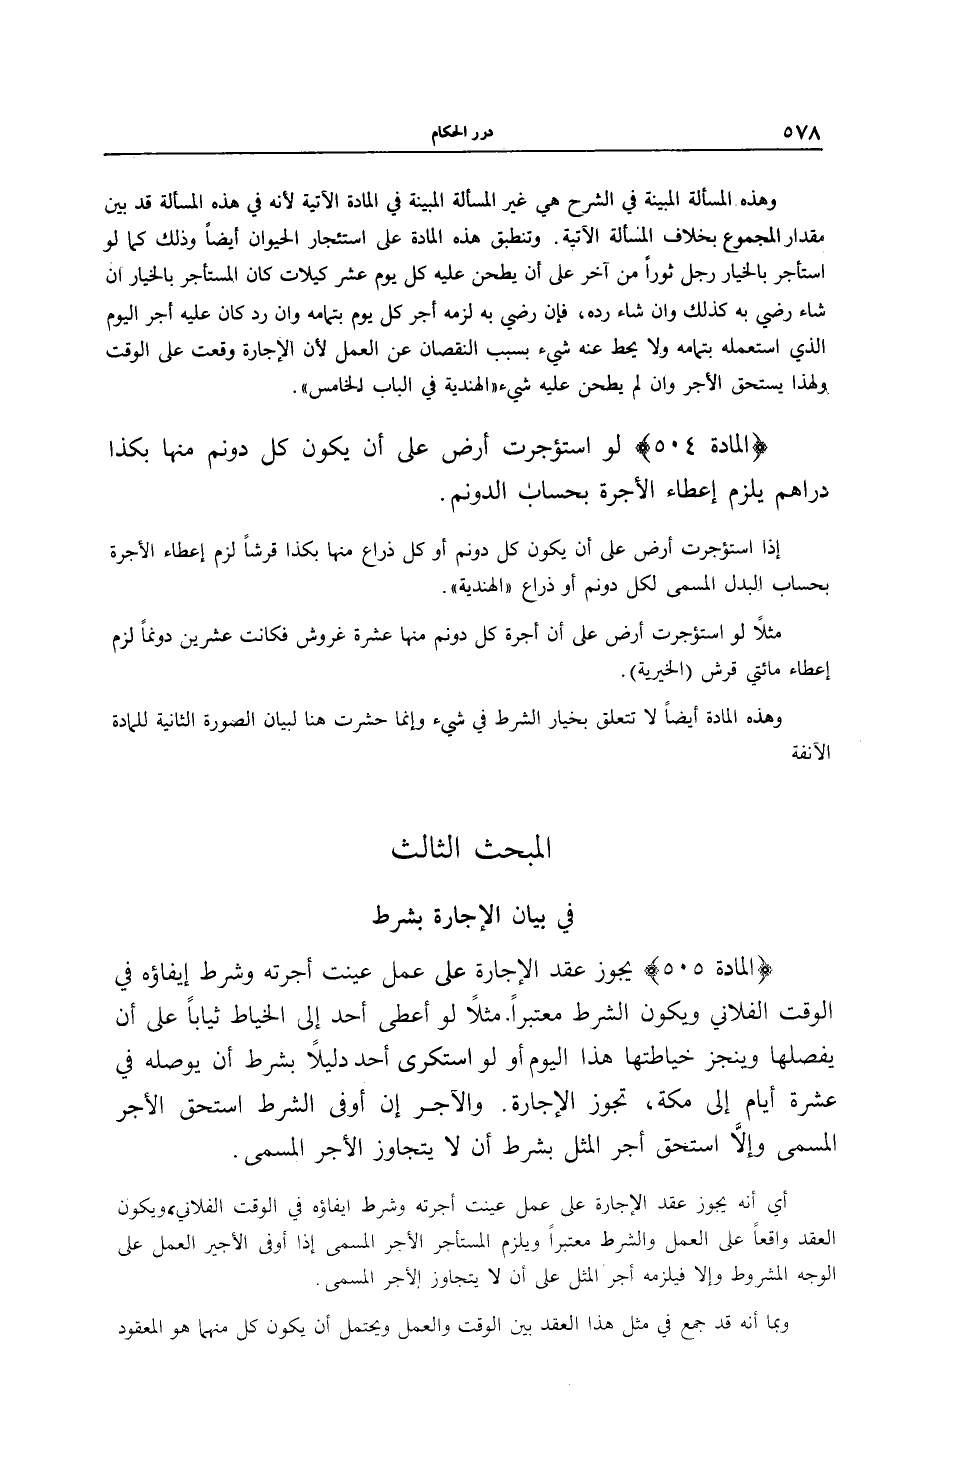 ٥٧٨ درر الحكام
وهذه المسألة المبينة في الشرح هي غير المسألة المبينة في المادة الآتية لأنه في هذه المسألة قد بين
مقدار المجموع بخلاف المسألة الآتية. وتنطبق هذه المادة على استئجار الحيوان أيضاً وذلك كما لو
استأجر بالخيار رجل ثوراً من آخر على أن يطحن عليه كل يوم عشر كيلات كان المستأجر بالخيار ان
شاء رضي به كذلك وان شاء رده، فإن رضي به لزمه أجر كل يوم بتمامه وان رد كان عليه أجر اليوم
الذي استعمله بتمامه ولا يحط عنه شيء بسبب النقصان عن العمل لأن الإجارة وقعت على الوقت
ولهذا يستحق الأجر وان لم يطحن عليه شيء«الهندية في الباب الخامس».
﴿المادة ٥٠٤﴾ لو استؤجرت أرض على أن يكون كل دونم منها بكذا
دراهم يلزم إعطاء الأجرة بحساب الدونم.
إذا استؤجرت أرض على أن يكون كل دونم أو كل ذراع منها بكذا قرشاً لزم إعطاء الأجرة
بحساب البدل المسمى لكل دونم أو ذراع «الهندية».
مثلاً لو استؤجرت أرض على أن أجرة كل دونم منها عشرة غروش فكانت عشرين دونماً لزم
إعطاء مائتي قرش (الخيرية).
وهذه المادة أيضاً لا تتعلق بخيار الشرط في شيء وإنما حشرت هنا لبيان الصورة الثانية للمادة
الآنفة
المبحث الثالث
في بيان الإجارة بشرط
﴿المادة ٥٠٥﴾ يجوز عقد الإجارة على عمل عينت أجرته وشرط إيفاؤه في
الوقت الفلاني ويكون الشرط معتبراً. مثلاً لو أعطى أحد إلى الخياط ثياباً على أن
يفصلها وينجز خياطتها هذا اليوم أو لو استكرى أحد دليلاً بشرط أن يوصله في
عشرة أيام إلى مكة، تجوز الإجارة. والآجر إن أوفى الشرط استحق الأجر
المسمى وإلَّا استحق أجر المثل بشرط أن لا يتجاوز الأجر المسمى.
أي أنه يجوز عقد الإجارة على عمل عينت أجرته وشرط ايفاؤه في الوقت الفلاني، ويكون
العقد واقعاً على العمل والشرط معتبراً ويلزم المستأجر الأجر المسمى إذا أوفى الأجير العمل على
الوجه المشروط وإلا فيلزمه أجر المثل على أن لا يتجاوز الأجر المسمى.
وبما أنه قد جمع في مثل هذا العقد بين الوقت والعمل ويحتمل أن يكون كل منهما هو المعقود